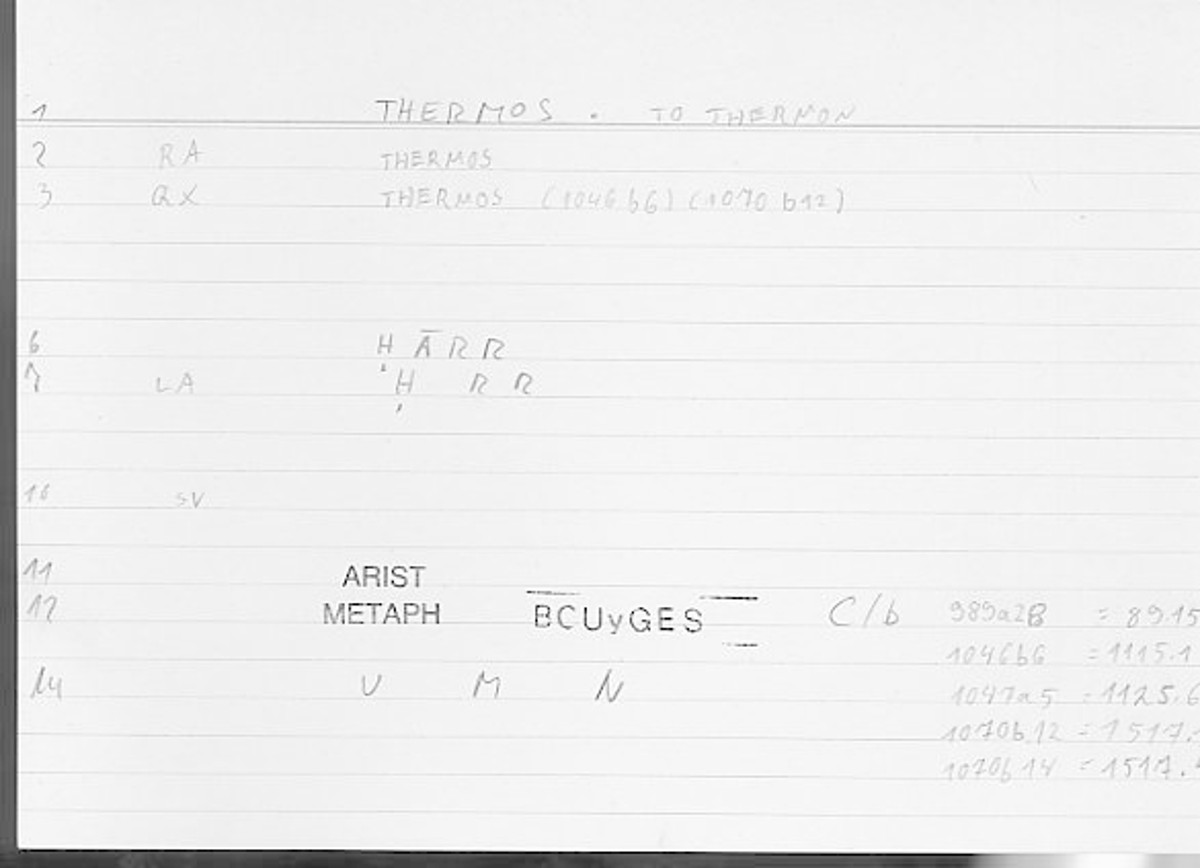 1 THERMOS . TO THERMON
2 RA THERMOS
3 QX THERMOS (1046 b6) (1070 b12)
6 H Ā R R
7 LA H R R
10 SV
11 ARIST
12 METAPH BCUyGES C/b 989a28 = 89.15
1046b6 = 1115.1
1047a5 = 1125.6
1070b12 = 1517.
1070b14 = 1517.
14 U M N